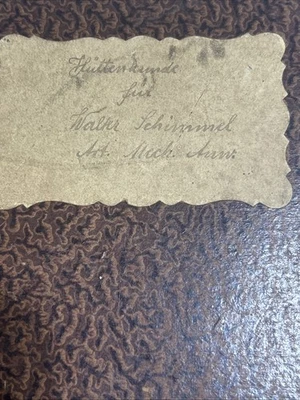 Hüttenkunde
für
Walter Schimmel
Art. Mech. Anw.